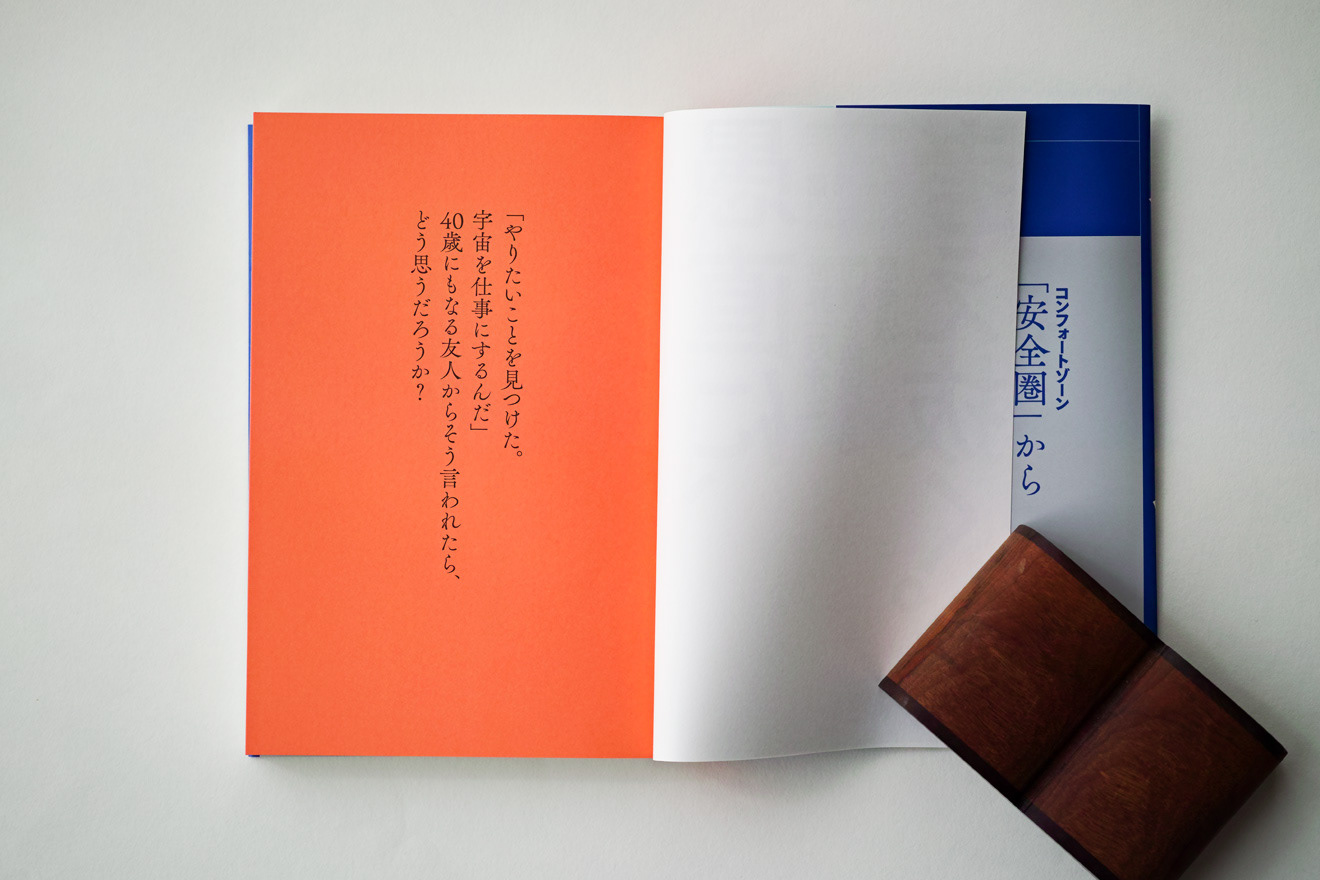 コンフォートゾーン
「安全圏」から
「やりたいことを見つけた。
宇宙を仕事にするんだ」
40歳にもなる友人からそう言われたら、
どう思うだろうか？